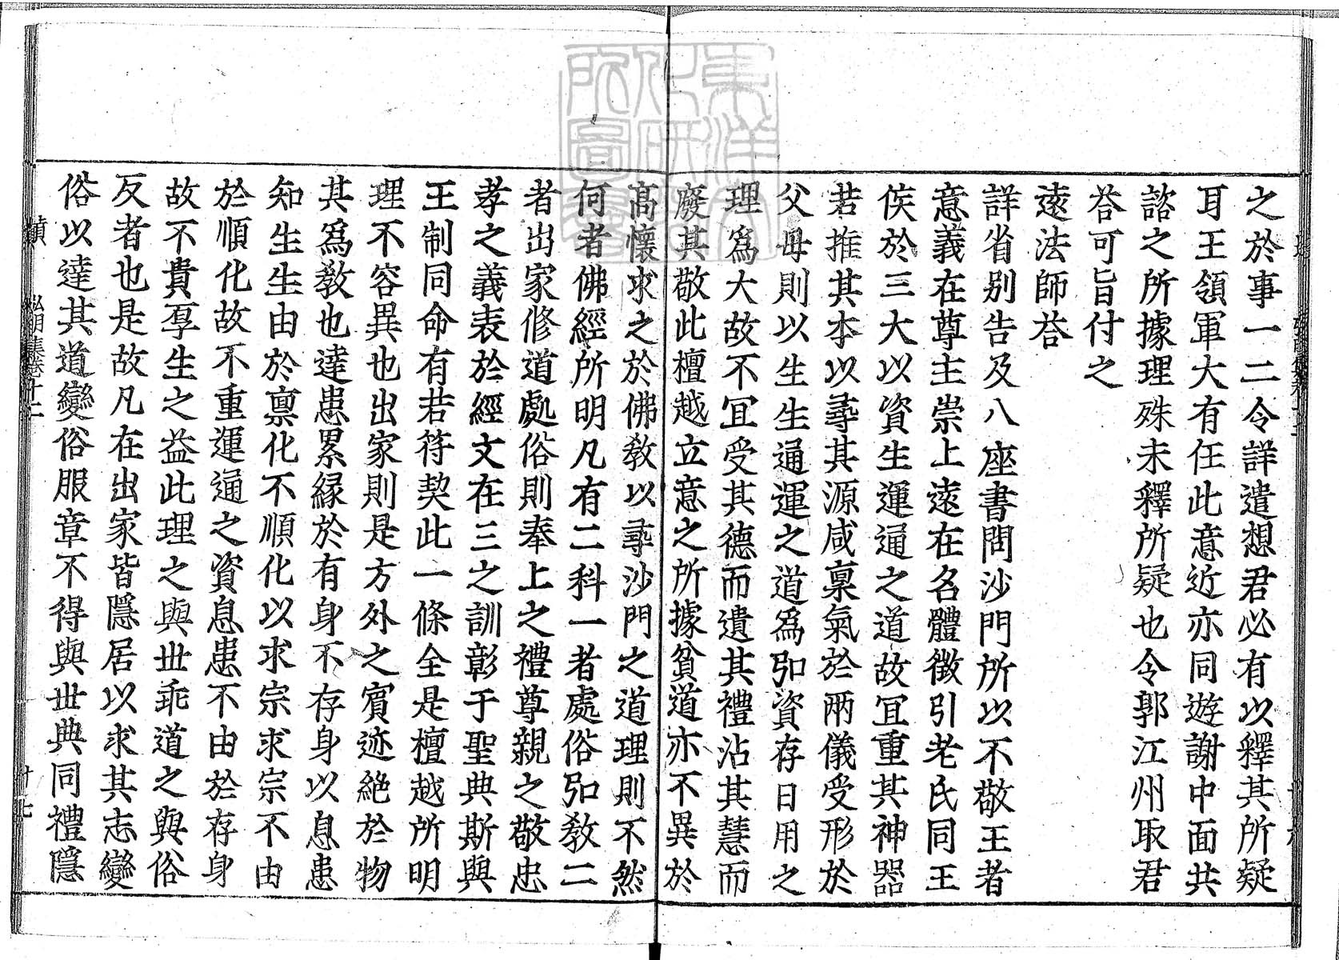 之於事一二令詳遣想君必有以釋其所疑
耳王領軍大有任此意近亦同遊謝中面共
諮之所據理殊未釋所疑也令郭江州取君
荅可旨付之
遠法師荅
詳省別告及八座書問沙門所以不敬王者
意義在尊主崇上遠在名體徵引老氏同王
侯於三大以資生運通之道故冝重其神器
若推其本以尋其源咸稟氣於兩儀受形於
父母則以生生通運之道爲弘資存日用之
理爲大故不冝受其德而遺其禮沾其慧而
廢其敬此檀越立意之所據貧道亦不異於
高懷求之於佛敎以尋沙門之道理則不然
何者佛經所明凡有二科一者處俗弘敎二
者出家修道處俗則奉上之禮尊親之敬忠
孝之義表於經文在三之訓彰于聖典斯與
王制同命有若符契此一條全是檀越所明
理不容異也出家則是方外之賓迹絶於物
其爲敎也達患累緣於有身不存身以息患
知生生由於稟化不順化以求宗求宗不由
於順化故不重運通之資息患不由於存身
故不貴厚生之益此理之與丗乖道之與俗
反者也是故凡在出家皆隱居以求其志變
俗以達其道變俗服章不得與丗典同禮隱
弘明集卷十二
十七
東洋文化研究所圖書